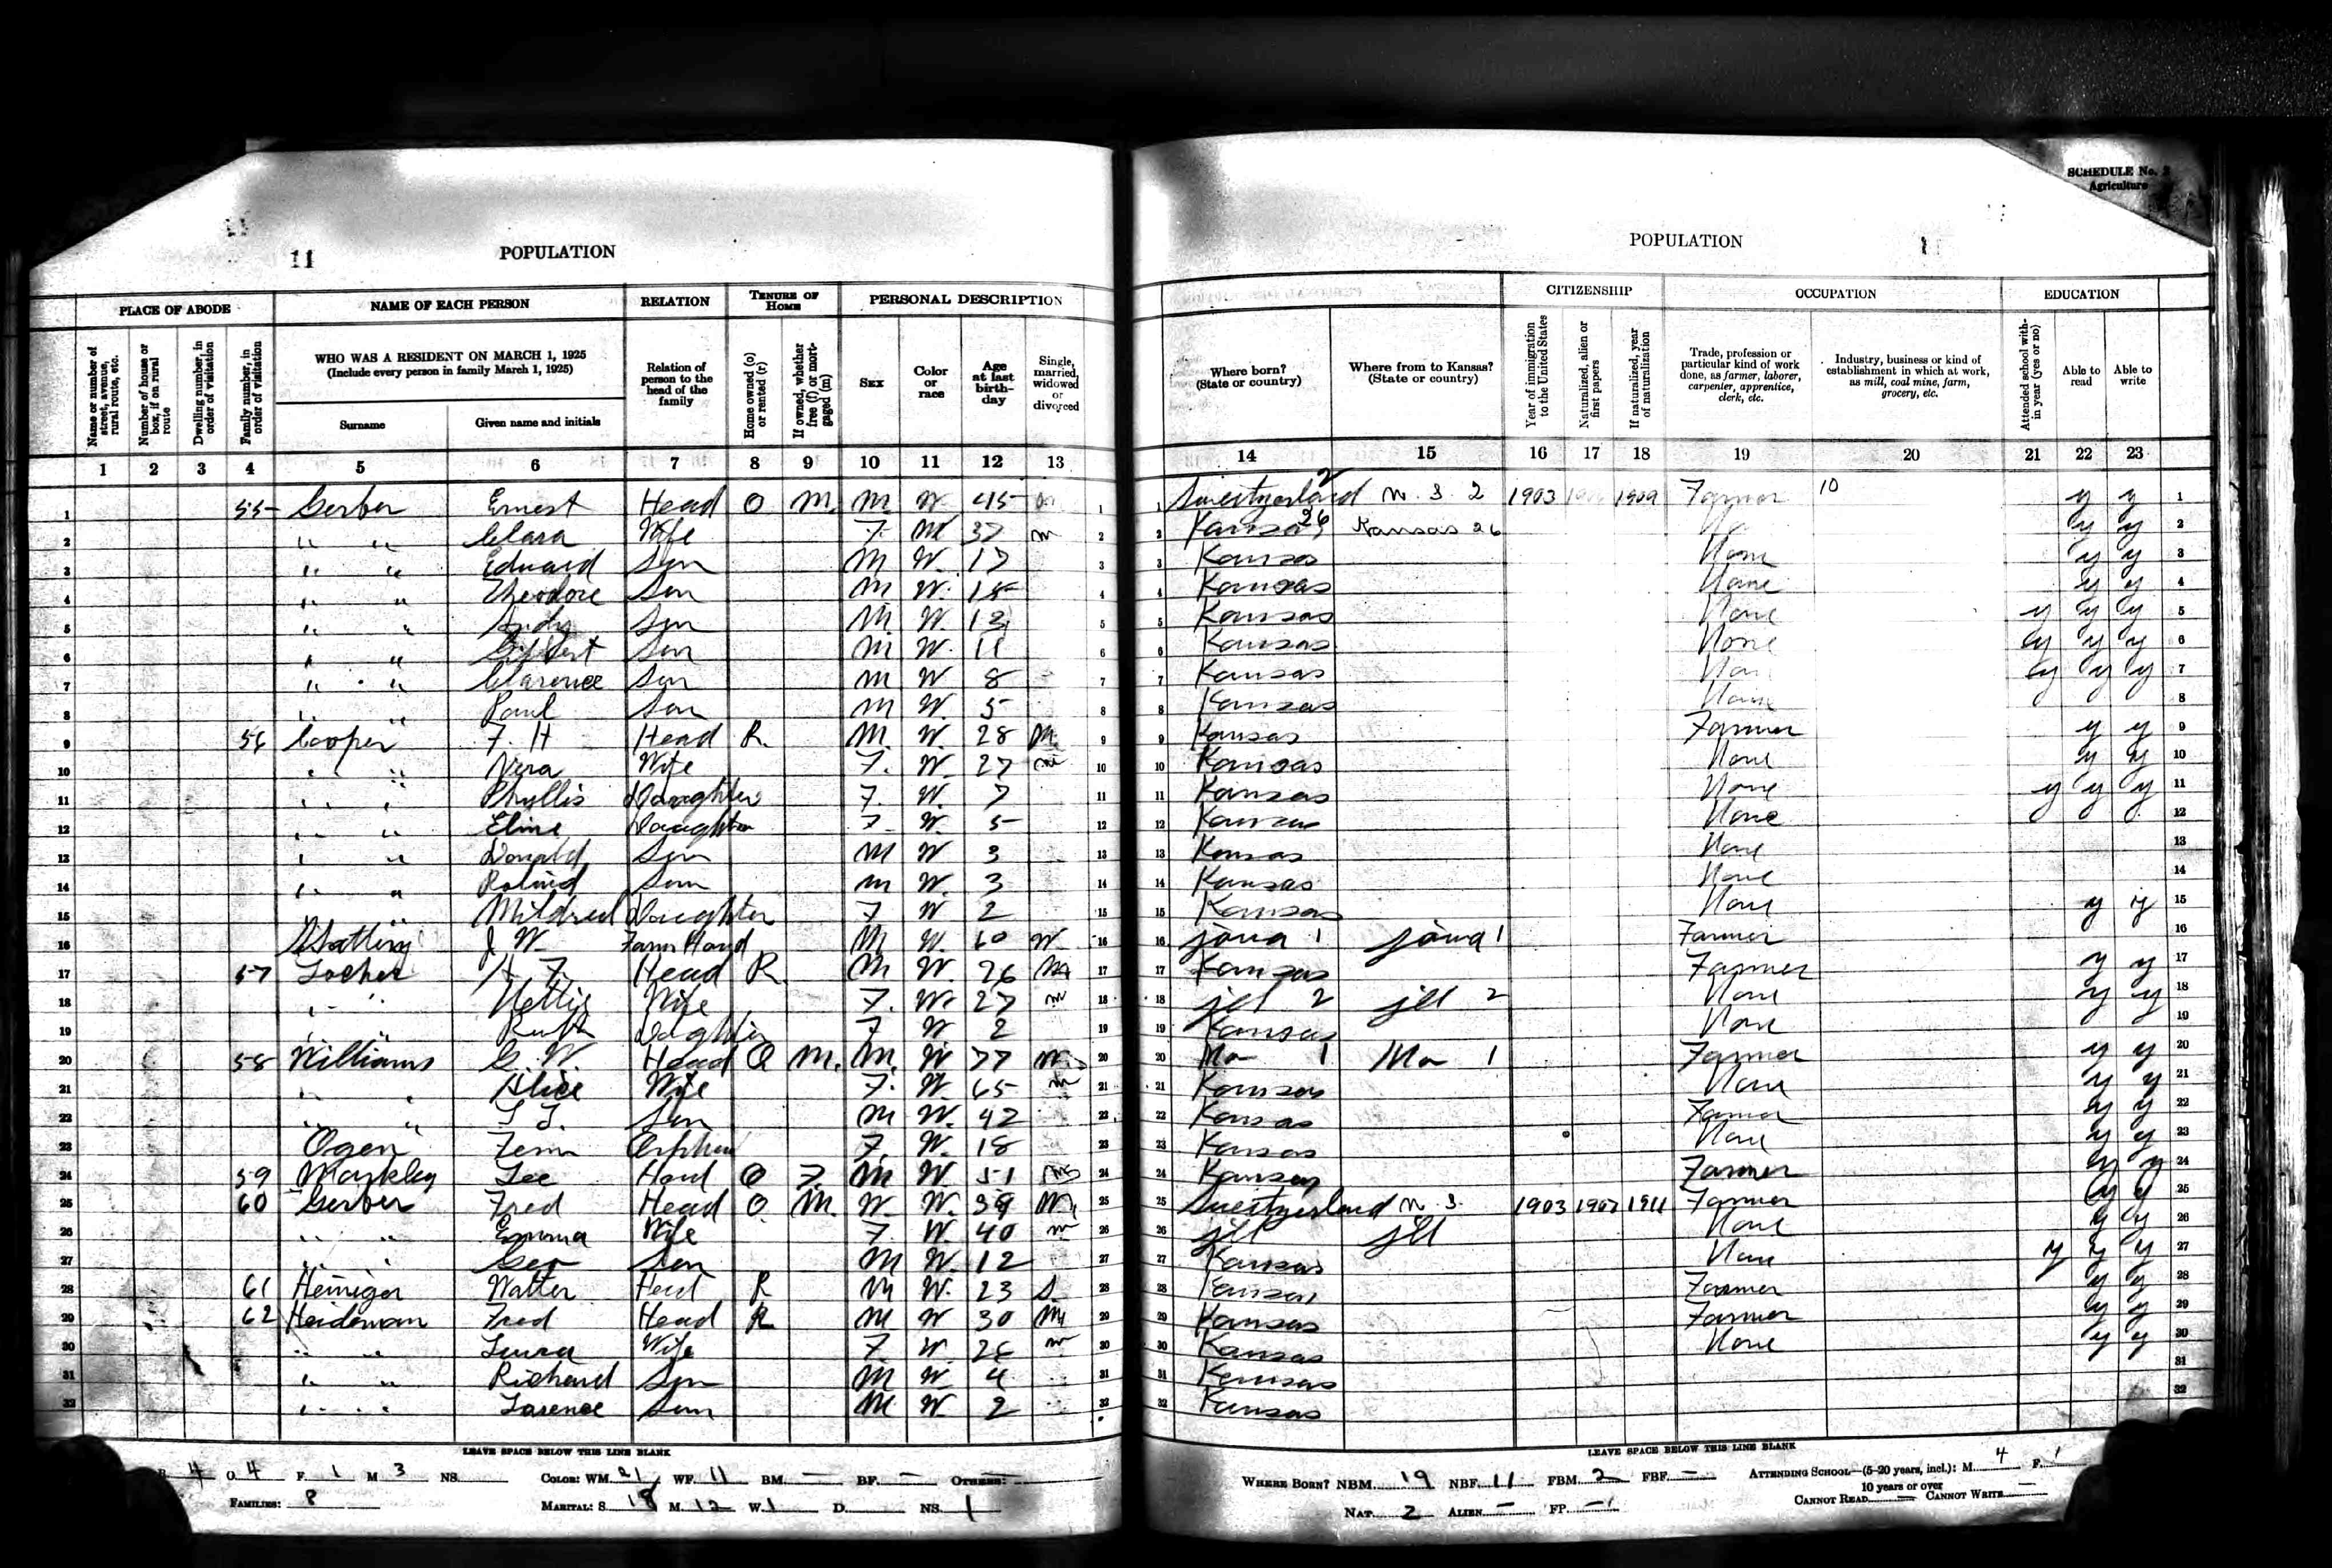 SCHEDULE No. 2
Agriculture
11 POPULATION
POPULATION
PLACE OF ABODE NAME OF EACH PERSON RELATION TENURE OF HOME PERSONAL DESCRIPTION
CITIZENSHIP OCCUPATION EDUCATION
Name or number of street, avenue, rural route, etc.
Number of house or box, if on rural route
Dwelling number, in order of visitation
Family number, in order of visitation
WHO WAS A RESIDENT ON MARCH 1, 1925
(Include every person in family March 1, 1925)
Surname Given name and initials
Relation of person to the head of the family
Home owned (o) or rented (r)
If owned, whether free (f) or mortgaged (m)
SEX
Color or race
Age at last birthday
Single, married, widowed or divorced
Where born? (State or country)
Where from to Kansas? (State or country)
Year of immigration to the United States
Naturalized, alien or first papers
If naturalized, year of naturalization
Trade, profession or particular kind of work done, as farmer, laborer, carpenter, apprentice, clerk, etc.
Industry, business or kind of establishment in which at work, as mill, coal mine, farm, grocery, etc.
Attended school within year (yes or no)
Able to read
Able to write
1 2 3 4 5 6 7 8 9 10 11 12 13
14 15 16 17 18 19 20 21 22 23
1 55 Gerber Ernest Head O M. M W. 45 1 Sweitzerland 2 N. S. 2 1903 1909 Farmer 10 y y 1
2 " " Clara Wife F. W 37 m 2 Kansas 26 Kansas 26 y y 2
3 " " Eduard Son M W. 17 3 Kansas None y y 3
4 " " Theodore Son M W. 15 4 Kansas None y y 4
5 " " Andy Son M W. 13 5 Kansas None y y y 5
6 " " Son M W. 11 6 Kansas None y y y 6
7 " " Clarence Son M W 8 7 Kansas y y y 7
8 " " Paul Son M W. 5 8 Kansas None 8
9 56 Cooper F. H Head R. M. W. 28 M. 9 Kansas Farmer y y 9
10 " " Vera Wife F. W. 27 m 10 Kansas None y y 10
11 " " Phyllis Daughter F. W. 7 11 Kansas None y y y 11
12 " " Eline Daughter F. W. 5 12 Kansas None 12
13 " " Donald Son M W 3 13 Kansas None 13
14 " " Roland Son M W. 3 14 Kansas None 14
15 " Mildred Daughter F W 2 15 Kansas None y y 15
16 J W Farm Hand M W. 60 W 16 jowa 1 jowa 1 Farmer 16
17 57 Locher H. F. Head R. M W. 26 M 17 Kansas Farmer y y 17
18 " " Nettie Wife F. W 27 m 18 jll 2 jll 2 None y y 18
19 " " Ruth Daghter F W 2 19 Kansas None 19
20 58 Williams G. W. Head O M. M. W 77 M. 20 Mo 1 Mo 1 Farmer y y 20
21 " " Alice Wife F. W. 65 m 21 Kansas None y y 21
22 " " Son M W. 42 22 Kansas Farmer y y 22
23 Ogen Fern Orphan F. W. 18 23 Kansas None y y 23
24 59 Markley Lee Head O F. M W. 51 24 Kansas Farmer y y 24
25 60 Gerber Fred Head O. M. W. W. 39 M. 25 Sweitzerland N. S. 1903 1907 1911 Farmer y y 25
26 " " Emma Wife F. W. 40 m 26 jll jll None y y 26
27 " " Geo Son M W. 12 27 Kansas None y y y 27
28 61 Heiniger Walter Head R M W. 23 S. 28 Kansas Farmer y y 28
29 62 Heideman Fred Head R M W 30 M 29 Kansas Farmer y y 29
30 " " Laura Wife F. W. 26 m 30 Kansas None y y 30
31 " " Richard Son M W 4 31 Kansas 31
32 " " Larence Son M W. 2 32 Kansas 32
LEAVE SPACE BELOW THIS LINE BLANK
LEAVE SPACE BELOW THIS LINE BLANK
R. 4 O. 4 F. 1 M 3 NS. COLOR: WM. 21 WF. 11 BM. — BF. — OTHERS:
FAMILIES: 8 MARITAL: S. 18 M. 12 W. 1 D. NS. 1
WHERE BORN? NBM. 19 NBF. 11 FBM. 2 FBF. — ATTENDING SCHOOL—(5-20 years, incl.): M. 4 F. 1
NAT. 2 ALIEN — FP. — 10 years or over CANNOT READ — CANNOT WRITE —